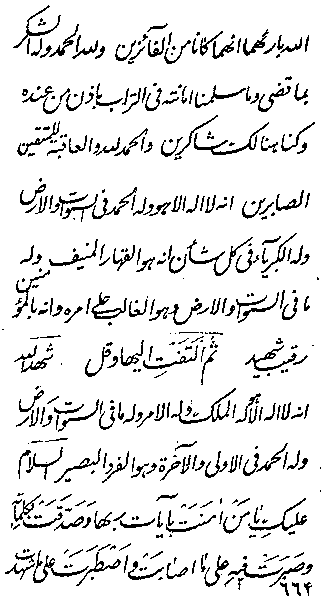 الله بارئهما انهما كانا من الفائزين ولله الحمد وله الشكر
بما قضى وما سلمنا امانته فى التراب باذن من عنده
وكنا هنالك شاكرين والحمد لله والعاقبة للمتقين
الصابرين انه لا اله الا هو وله الحمد فى السموات والارض
وله الكبرياء فى كل شأن انه هو القهار المنيف وله
ما فى السموات والارض وهو الغالب على امره وانه بالمؤمنين
رقيب شهيد ثم التفت اليها وقل شهد الله
انه لا اله الا هو له الملك وله الامر وله ما فى السموات والارض
وله الحمد فى الاولى والآخرة وهو الفرد البصير السلام
عليك يا من امنت بآيات ربها وصدقت بكلماته
وصبرت فيه على ما اصابت واصطبرت على ما شهدت
٦٦٤